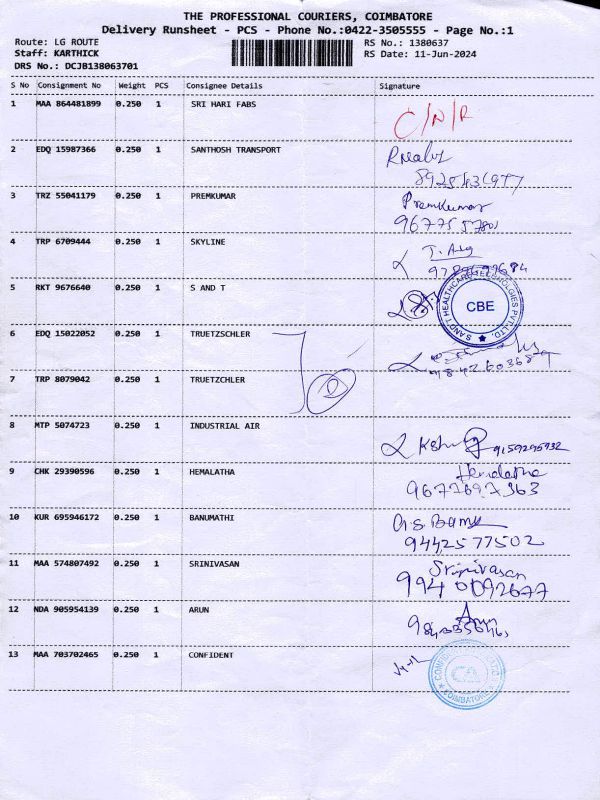 THE PROFESSIONAL COURIERS, COIMBATORE
Delivery Runsheet - PCS - Phone No.:0422-3505555 - Page No.:1
Route: LG ROUTE RS No.: 1380637
Staff: KARTHICK RS Date: 11-Jun-2024
DRS No.: DCJB138063701
S No Consignment No Weight PCS Consignee Details Signature
1 MAA 864481899 0.250 1 SRI HARI FABS C/N/R
2 EDQ 15987366 0.250 1 SANTHOSH TRANSPORT
3 TRZ 55041179 0.250 1 PREMKUMAR Premkumar
4 TRP 6709444 0.250 1 SKYLINE
5 RKT 9676640 0.250 1 S AND T
S AND T HEALTHCARE TECHNOLOGIES PVT.LTD.
CBE
6 EDQ 15022052 0.250 1 TRUETZSCHLER
7 TRP 8079042 0.250 1 TRUETZCHLER
8 MTP 5074723 0.250 1 INDUSTRIAL AIR 9159295932
9 CHK 29390596 0.250 1 HEMALATHA Hemalatha
9677697363
10 KUR 695946172 0.250 1 BANUMATHI
9442577502
11 MAA 574807492 0.250 1 SRINIVASAN Srinivasan
9940092677
12 NDA 905954139 0.250 1 ARUN Arun
13 MAA 703702465 0.250 1 CONFIDENT
CA
COIMBATORE